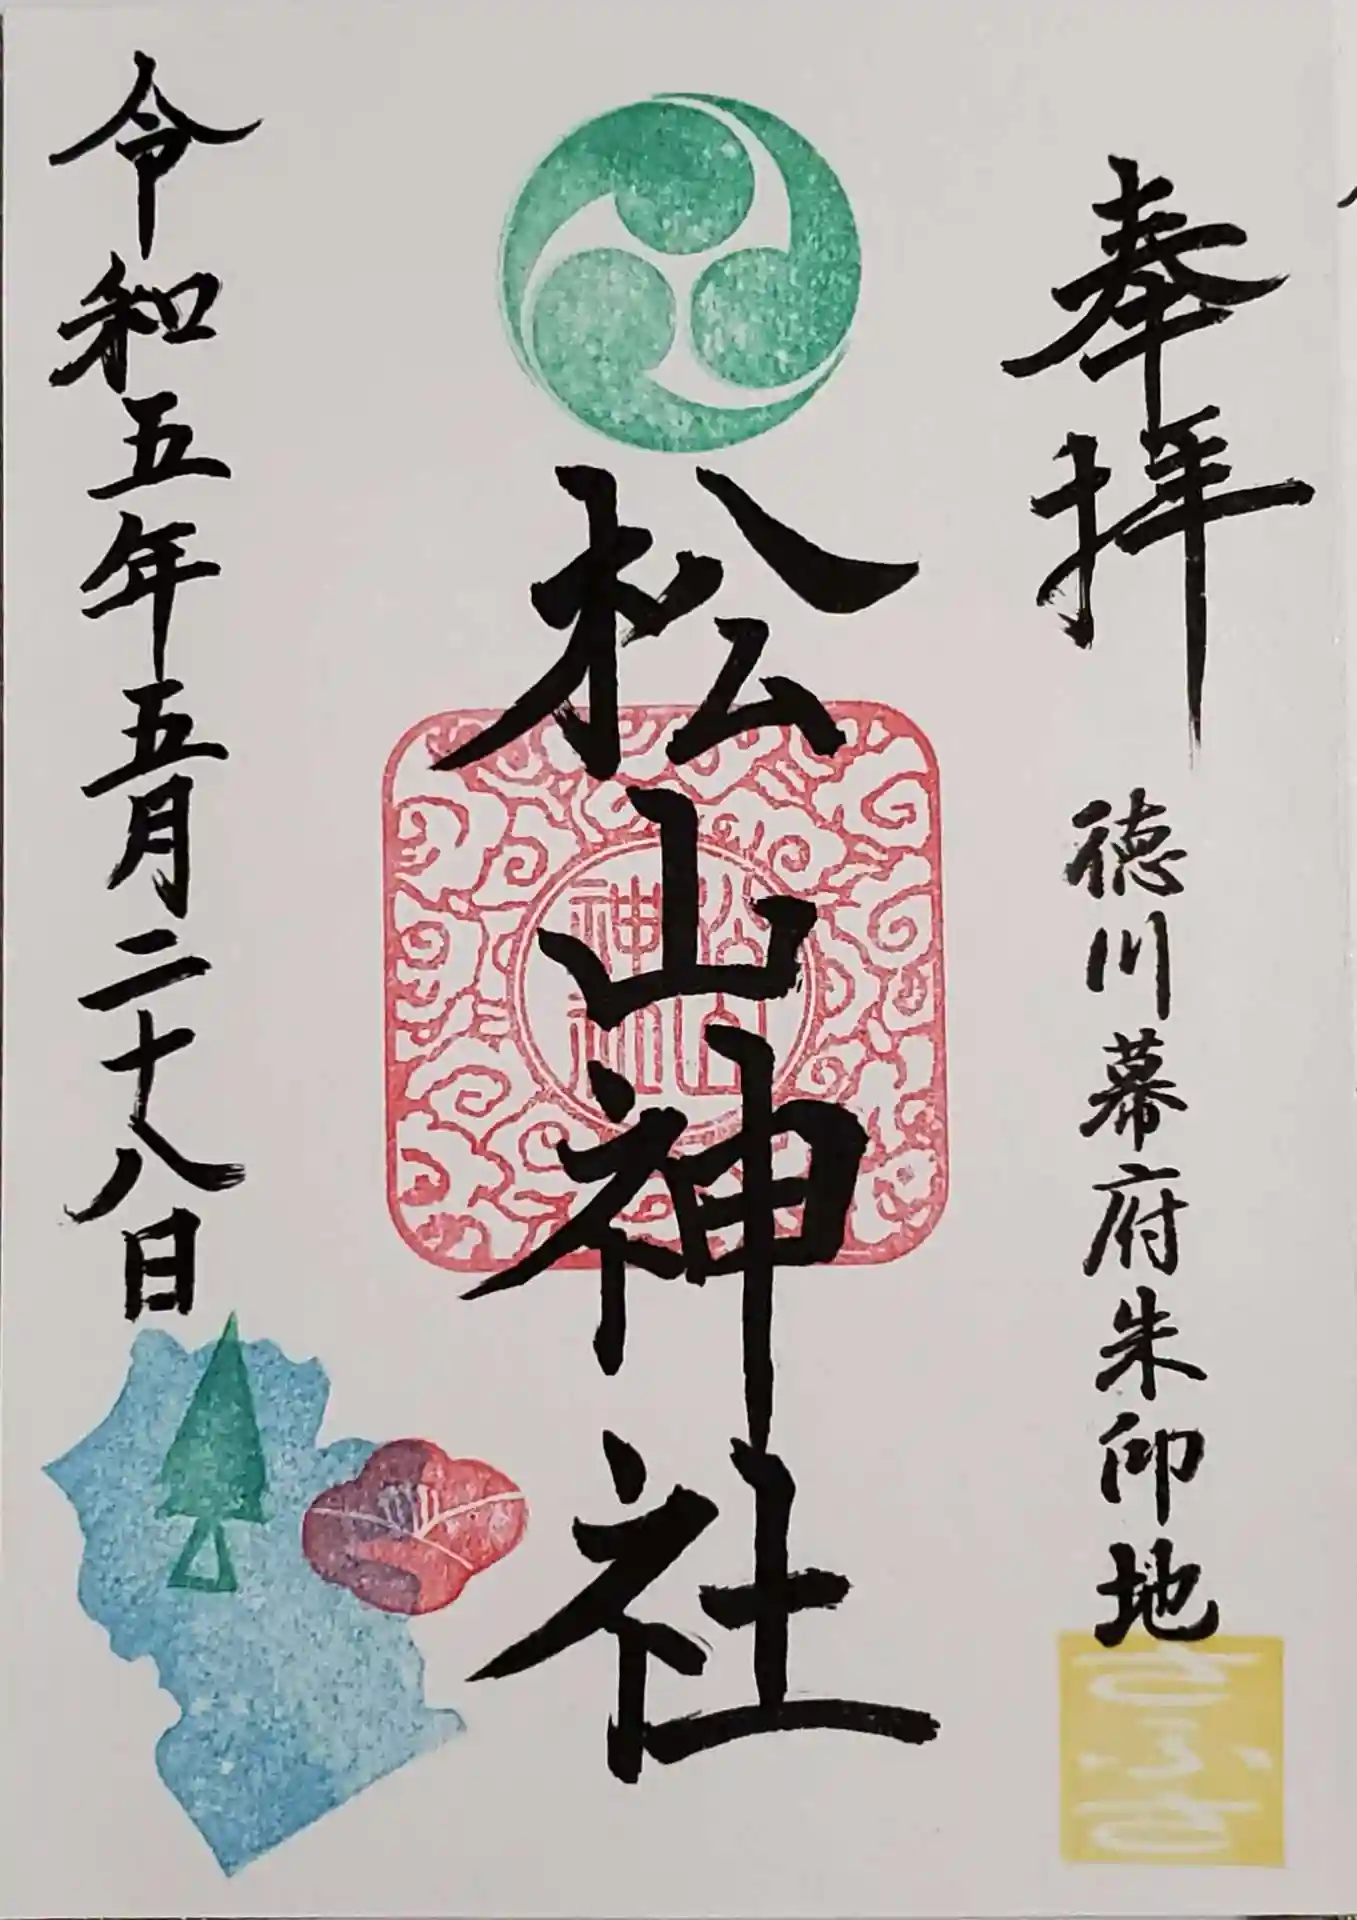 奉拝
徳川幕府朱印地
そふさ
松山神社
令和五年五月二十八日